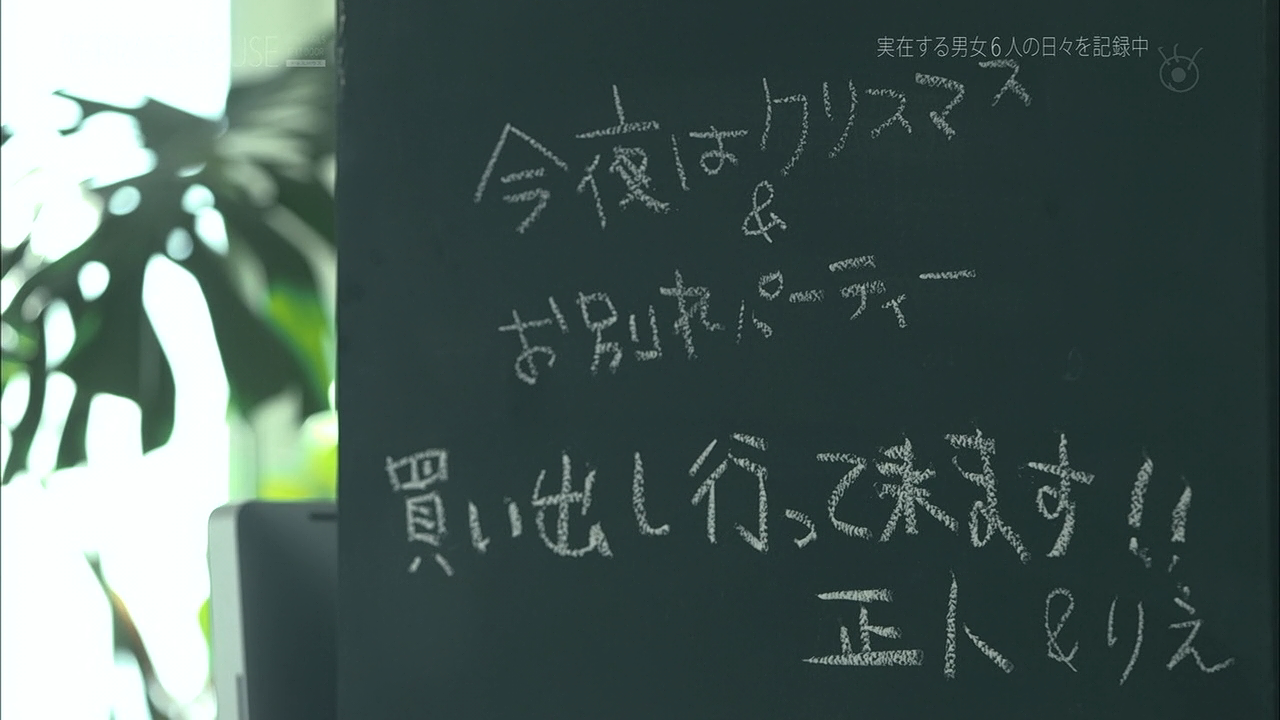 実在する男女6人の日々を記録中
今夜はクリスマス
&
お別れパーティー
買い出し行って来ます!!
正人&りえ